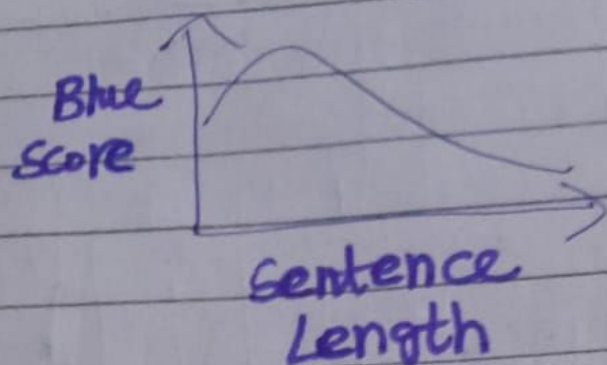 Blue
Score
Sentence
Length